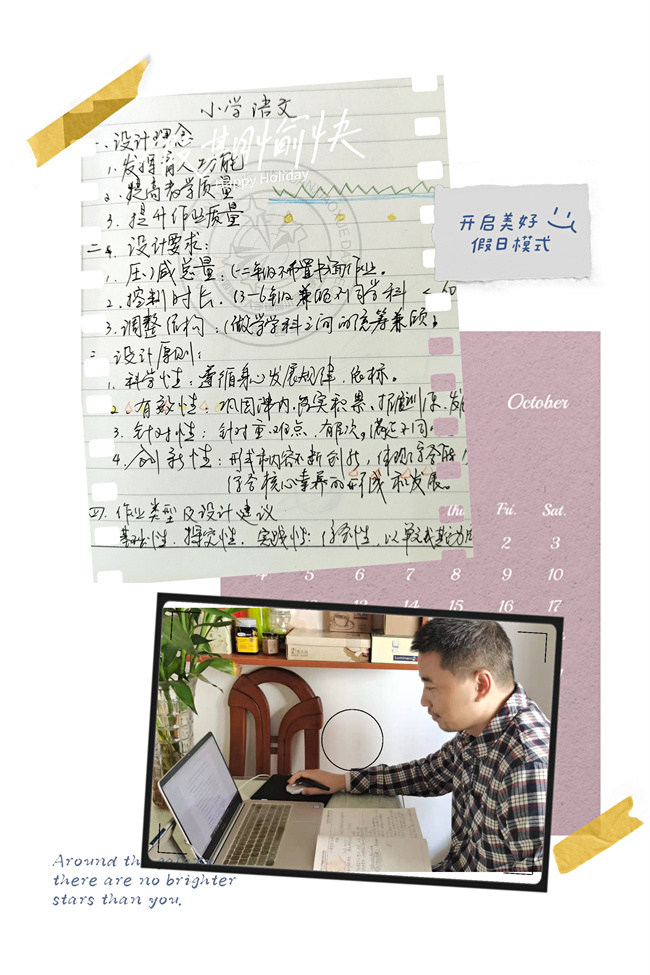 小学语文
假期愉快
Happy Holiday
一、设计理念
1. 发挥育人功能
2. 提高教学质量
3. 提升作业质量
二、设计要求:
1. 压减总量:(一二年级不布置书面作业。
2. 控制时长.(3-6年级兼顾不同学科 < 60
3. 调整结构:(做学学科之间的统筹兼顾。
设计原则:
1. 科学性:遵循身心发展规律,依标。
2. 有效性:巩固课内,落实积累、推进训练、发
3. 针对性:针对重难点,有层次,满足不同。
4. 创新性:形式和内容不断创新,体现综合
综合核心素养的形成和发展。
四. 作业类型及设计建议
基础性、探究性、实践性:综合性,以
开启美好
假日模式
October
thu Fri. Sat.
2 3
4 5 6 7 8 9 10
15 16 17
Around the
there are no brighter
stars than you.